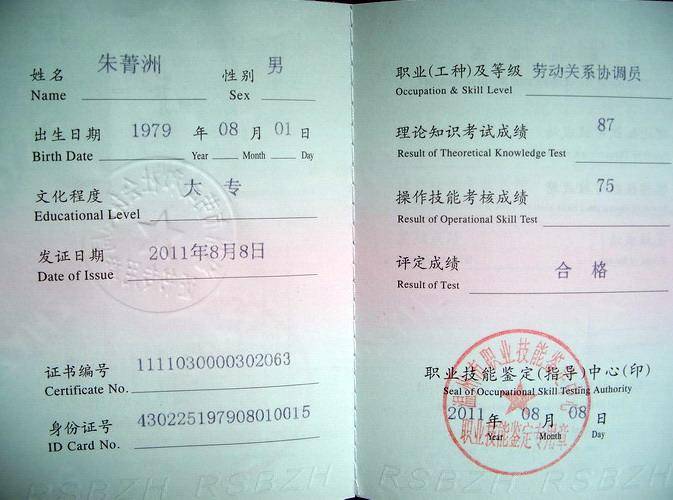 姓名 朱菁洲 性别 男
Name Sex
出生日期 1979 年 08 月 01 日
Birth Date Year Month Day
文化程度 大专
Educational Level
发证日期 2011年8月8日
Date of Issue
证书编号 1111030000302063
Certificate No.
身份证号 430225197908010015
ID Card No.
职业(工种)及等级 劳动关系协调员
Occupation & Skill Level
理论知识考试成绩 87
Result of Theoretical Knowledge Test
操作技能考核成绩 75
Result of Operational Skill Test
评定成绩 合格
Result of Test
职业技能鉴定(指导)中心(印)
Seal of Occupational Skill Testing Authority
2011 年 08 月 08 日
Year Month Day
职业技能鉴定专用章
RSBZH RSBZH